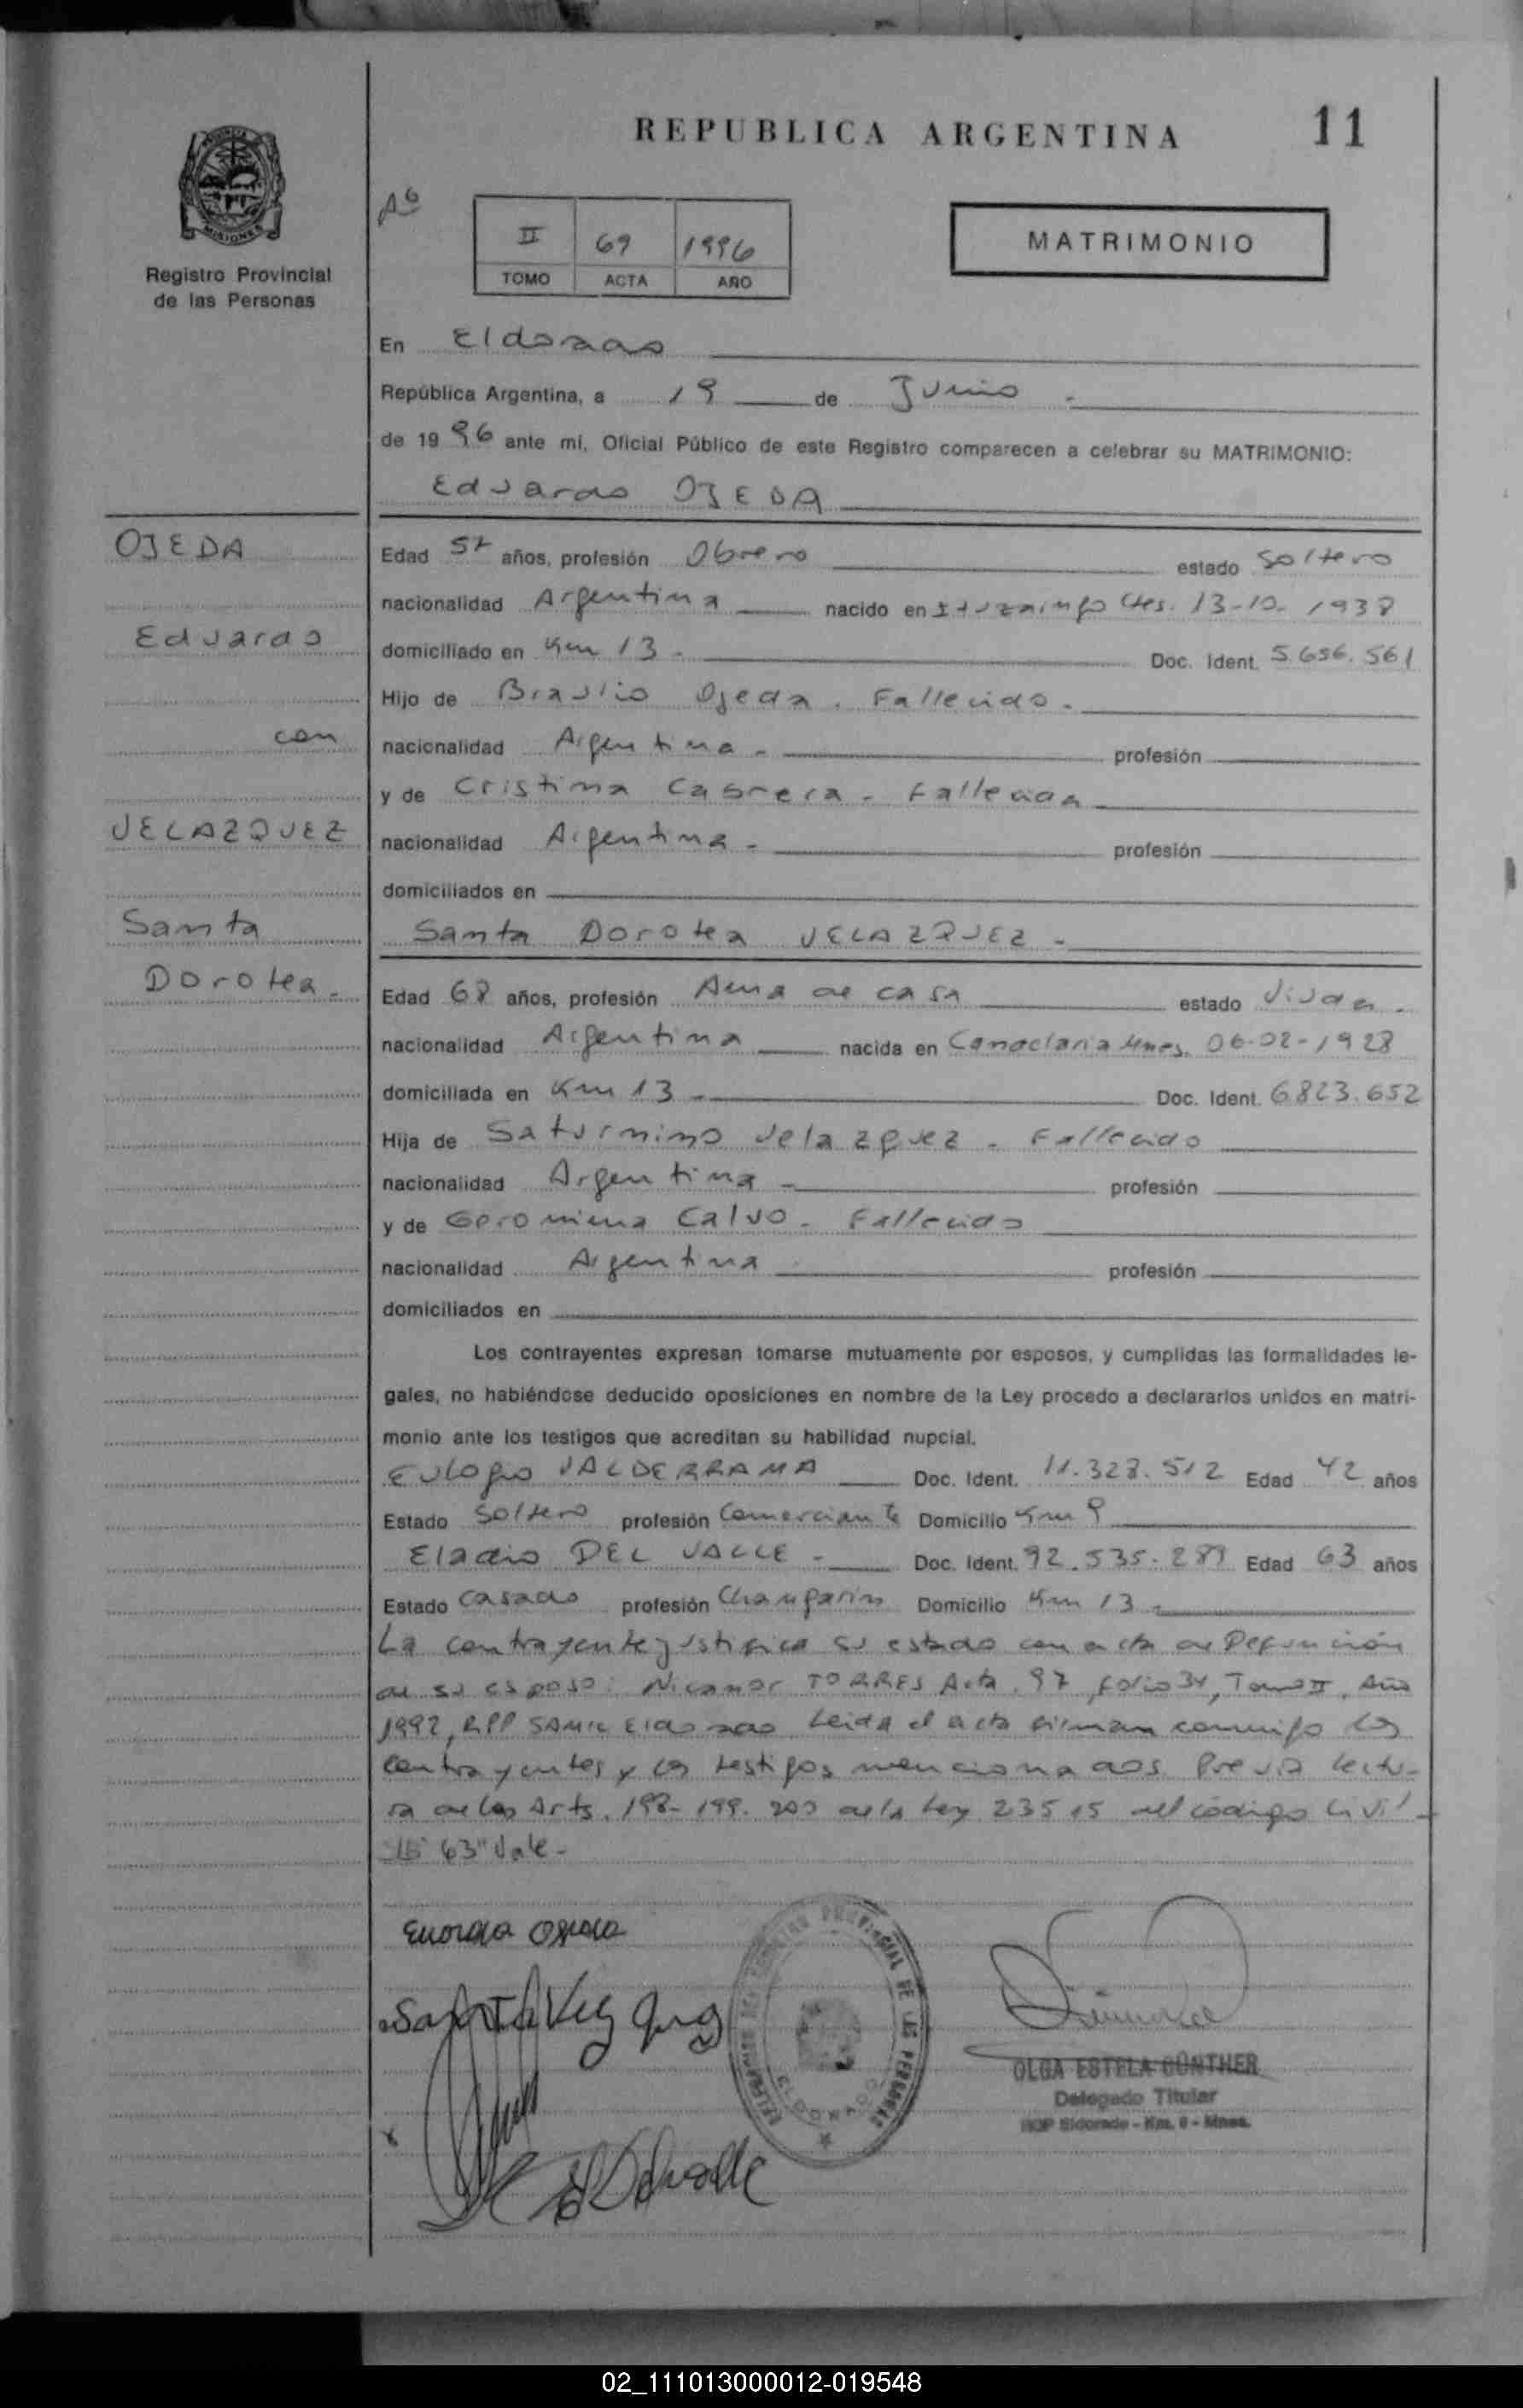 REPUBLICA ARGENTINA
11
MISIONES
Registro Provincial
de las Personas
II 69 1996
TOMO ACTA AÑO
MATRIMONIO
En Eldorado
República Argentina, a 19 de Junio
de 1996 ante mi, Oficial Público de este Registro comparecen a celebrar su MATRIMONIO:
Eduardo OJEDA
OJEDA
Eduardo
con
VELAZQUEZ
Santa
Dorotea.
Edad años, profesión Obrero estado soltero
nacionalidad Argentina nacido en Ituzaingo Ctes. 13-10-
domiciliado en Km 13 - Doc. Ident. 5.656.561
Hijo de Braulio Ojeda. Fallecido.
nacionalidad Argentina - profesión
y de Cristina Cabrera - Fallecida
nacionalidad Argentina - profesión
domiciliados en
Santa Dorotea VELAZQUEZ -
Edad 68 años, profesión Ama de casa estado Viuda.
nacionalidad Argentina nacida en Candelaria Mnes. 06-02-1928
domiciliada en Km 13 - Doc. Ident. 6823.652
Hija de Saturnino Velazquez - Fallecido
nacionalidad Argentina - profesión
y de Calvo - Fallecida
nacionalidad Argentina profesión
domiciliados en
Los contrayentes expresan tomarse mutuamente por esposos, y cumplidas las formalidades le-
gales, no habiéndose deducido oposiciones en nombre de la Ley procedo a declararlos unidos en matri-
monio ante los testigos que acreditan su habilidad nupcial.
Eulogio VALDERRAMA Doc. Ident. 11.328.512 Edad 42 años
Estado Soltero profesión Comerciante Domicilio Km 9
Eladio DEL VALLE - Doc. Ident. 92.535.289 Edad 63 años
Estado Casado profesión Changarin Domicilio Km 13 -
La contrayente justifica su estado con acta de Defunción
de su esposo: Nicanor TORRES Acta. 97, folio 34, Tomo II, Año
1992, RPP SAMIC Eldorado Leida el acta firman conmigo los
contrayentes y los testigos mencionados. Previa lectu-
ra de los Arts. 198-199-200 de la Ley 23515 del código Civil -
63" Vale-
Eduardo Ojeda
OLGA ESTELA GÜNTHER
Delegado Titular
RPP Eldorado - Km. 9 - Mnes.
02_111013000012-019548